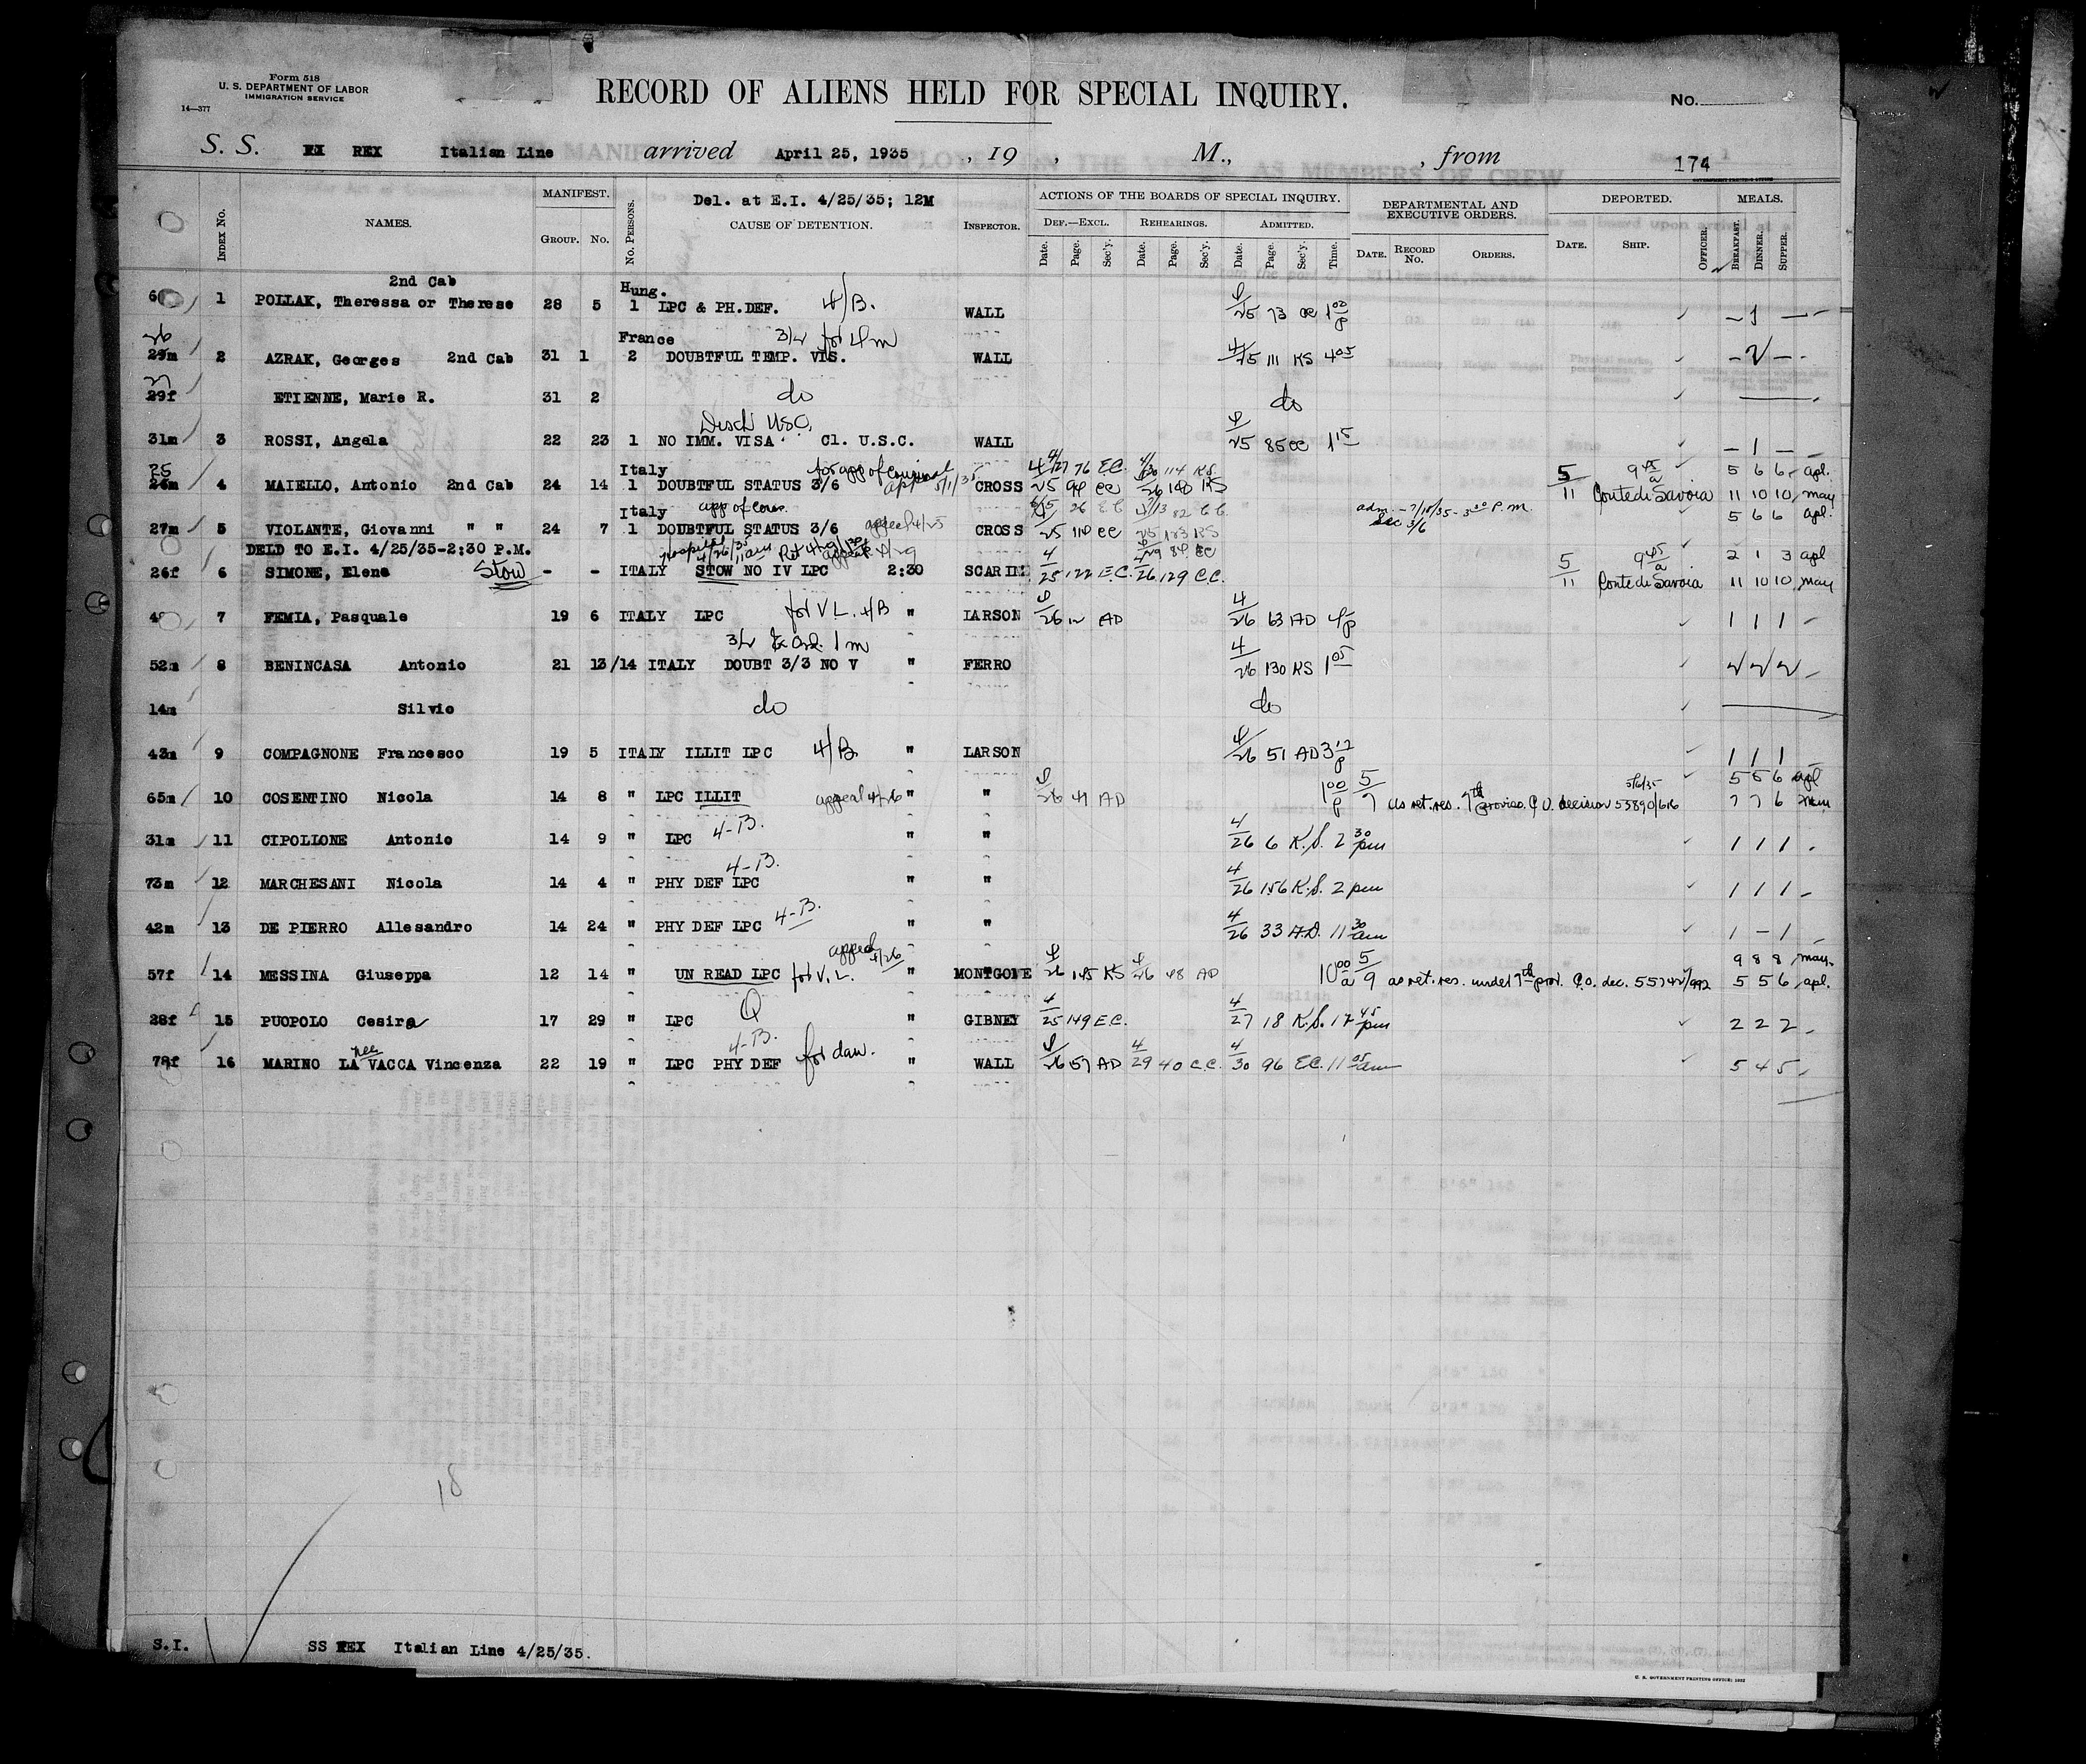 Form 518
U. S. DEPARTMENT OF LABOR
IMMIGRATION SERVICE
14—377
RECORD OF ALIENS HELD FOR SPECIAL INQUIRY.
No.
S. S. REX Italian Line arrived April 25, 1935 , 19 , M., , from 174
INDEX No. NAMES. MANIFEST. GROUP. No. No. PERSONS. Del. at E.I. 4/25/35; 12M CAUSE OF DETENTION. INSPECTOR. ACTIONS OF THE BOARDS OF SPECIAL INQUIRY. DEF.—EXCL. REHEARINGS. ADMITTED. DEPARTMENTAL AND EXECUTIVE ORDERS. DEPORTED. MEALS.
Date. Page. Sec'y. Date. Page. Sec'y. Date. Page. Sec'y. Time. DATE. RECORD No. ORDERS. DATE. SHIP. OFFICER. BREAKFAST. DINNER. SUPPER.
2nd Cab Hung.
1 POLLAK, Theressa or Therese 28 5 1 LPC & PH.DEF. 4/B. WALL 4/25 73 1 02 p – 1 –
26 France 3/2 for 4 m
29m 2 AZRAK, Georges 2nd Cab 31 1 2 DOUBTFUL TEMP. VIS. WALL 4/25 111 KS 4 05 – 2 –
27
29f ETIENNE, Marie R. 31 2 do do
Disch USC.
31m 3 ROSSI, Angela 22 23 1 NO IMM. VISA Cl. U.S.C. WALL 4/25 85 CC 1 15 – 1 –
25 Italy for app of 4/27 76 E.C. 4/30 114 K.S. 5 9 45 a 5 6 6 apl.
26m 4 MAIELLO, Antonio 2nd Cab 24 14 1 DOUBTFUL STATUS 3/6 5/1/35 CROSS 11 Conte di Savoia 11 10 10 may
Italy adm. – 7/18/35 – 3 00 P.M. 5 6 6 apl.
27m 5 VIOLANTE, Giovanni " " 24 7 1 DOUBTFUL STATUS 3/6 appeal 4/25 CROSS 25 110 CC Sec 3/6
DELD TO E.I. 4/25/35-2:30 P.M. hospital 4/26/35 5 9 45 a 2 1 3 apl
26f 6 SIMONE, Elena Stow - - ITALY STOW NO IV LPC 2:30 SCARIN 4/25 122 E.C. 26 129 C.C. 11 Conte di Savoia 11 10 10 may
7 FEMIA, Pasquale 19 6 ITALY LPC for V L. 4/B " LARSON 4/26 12 AD 4/26 63 AD 4 p 1 1 1
52m 8 BENINCASA Antonio 21 13/14 ITALY DOUBT 3/3 NO V " FERRO 4/26 130 KS 1 05 2 2 2
14m Silvio do do
43m 9 COMPAGNONE Francesco 19 5 ITALY ILLIT LPC 4/B. " LARSON 4/26 51 AD 3 12 p 1 1 1
5/6/35 5 5 6 apl
65m 10 COSENTINO Nicola 14 8 " LPC ILLIT appeal 4/26 " " 4/26 41 AD 1 00 p 5/7 as ret. res. 7th proviso. C.O. decision 55890/616 7 7 6 may
31m 11 CIPOLLONE Antonio 14 9 " LPC 4-B. " " 4/26 6 K.S. 2 30 pm 1 1 1
73m 12 MARCHESANI Nicola 14 4 " PHY DEF LPC 4-B. " " 4/26 156 K.S. 2 pm 1 1 1
42m 13 DE PIERRO Allesandro 14 24 " PHY DEF LPC 4-B. " " 4/26 33 A.D. 11 30 am 1 - 1
appeal 4/26 9 8 8 may.
57f 14 MESSINA Giuseppa 12 14 " UN READ LPC for V.L. " MONTGOME 4/26 145 KS 4/26 48 AD 10 00 a 5/9 as ret. res. under 7th prov. C.O. dec. 55742/992 5 5 6 apl.
28f 15 PUOPOLO Cesira 17 29 " LPC Q " GIBNEY 4/25 149 E.C. 4/27 18 K.S. 12 45 pm 2 2 2
78f 16 MARINO nee LA VACCA Vincenza 22 19 " LPC PHY DEF 4-B. for dau. " WALL 4/26 57 AD 4/29 40 C.C. 4/30 96 E.C. 11 05 am 5 4 5
18
S.I. SS REX Italian Line 4/25/35.
U. S. GOVERNMENT PRINTING OFFICE: 1932